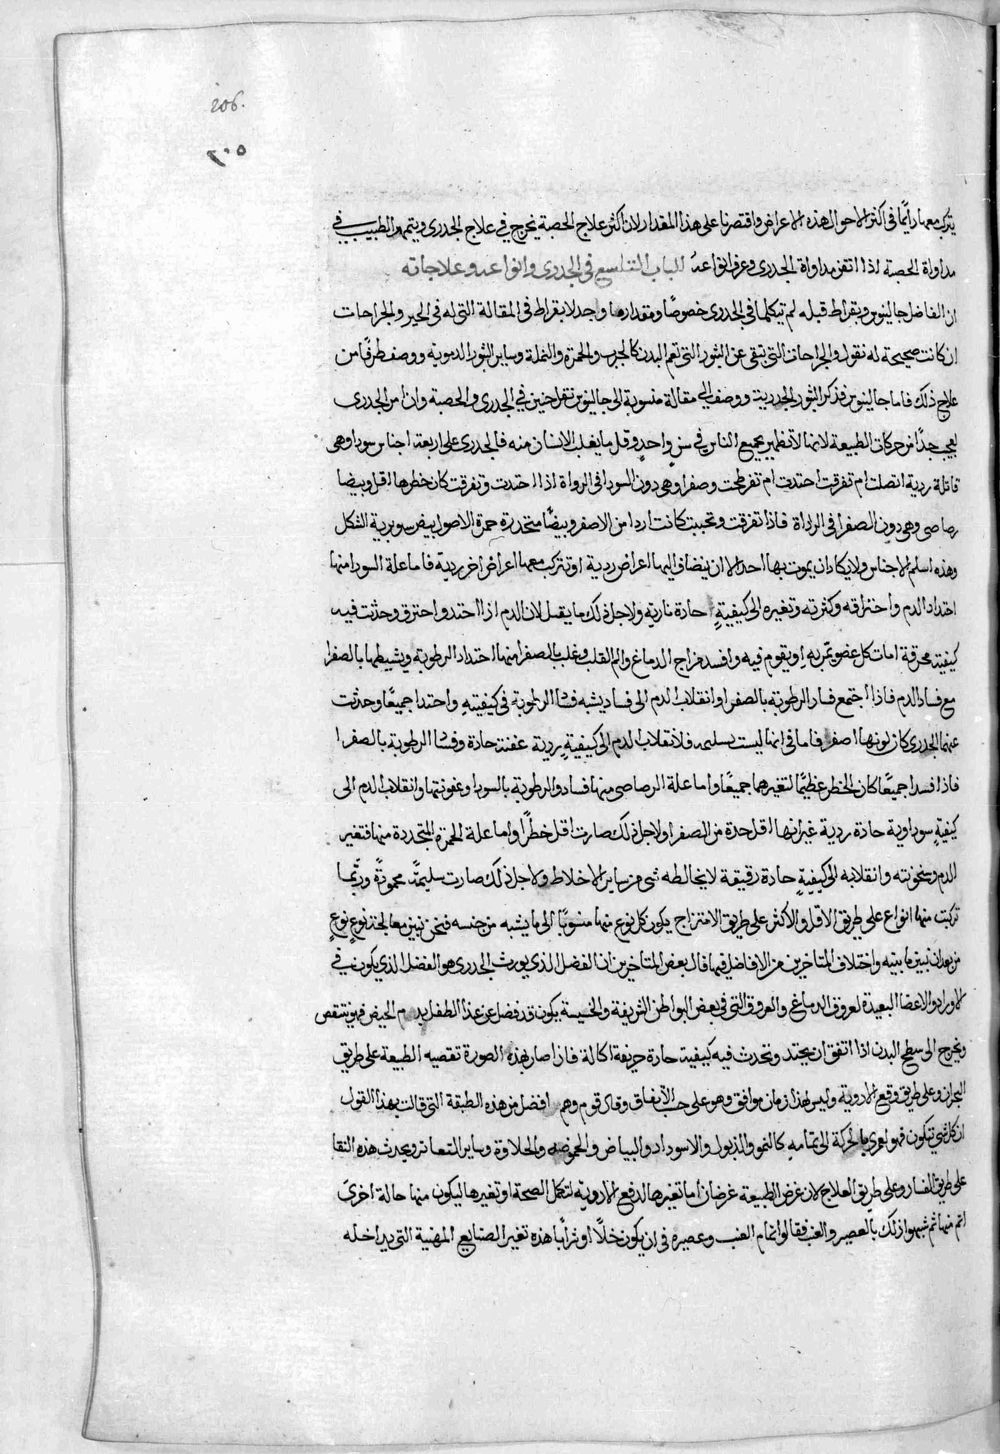 206.
٢٠٥
يتركب معها دائما في اكثر الاحوال هذه الاعراض واقتصرنا على هذا المقدار لان اكثر علاج الحصبة يخرج في علاج الجدري ويتمهر الطبيب في
مداواة الحصبة اذا اتقن مداواة الجدري وعرف انواعه الباب التاسع في الجدري وانواعه وعلاجاته
ان الفاضل جالينوس وبقراط قبله لم يتكلما في الجدري خصوصًا ومقدار ما واجد لابقراط في المقالة التي له في الحبر والجراحات
ان كانت صحيحة له نقول والجراحات التي تبقى عن البثور التي تعم البدن كالجرب والحمرة والنملة وساير البثور الدموية ووصف طرفًا من
علاج ذلك فاما جالينوس فذكر البثور الجدريت ووصف الي مقالة منسوبة الى جالينوس نقل حنين في الجدري والحصبة وان امر الجدرى
لعجب جدًا من حركات الطبيعة لانها لا تظهر بجميع الناس في سن واحدٍ وقل ما يفلت الانسان منه فالجدري على اربعة اجناس سودا وهى
قاتلة ردية اتصلت ام تفرقت احتدت ام تفرطحت وصفرا وهى دون السودا فى الرداة اذا احتدت وتفرقت كان خطرها اقل وبيضا
رصاصى وهى دون الصفرا فى الرداة فاذا تفرقت وتحببت كانت اردا من الاصفر وبيضًا متحدرة حمرة الاصول بيض سوبرية الشكل
وهذه اسلم الاجناس ولا يكاد ان يموت بها احد الا ان ينضاف اليها اعراض ردية او تتركب معها اعراض اخر ردية فاما علة السودا منها
احتداد الدم واحتراقه وكثرته وتغيره الى كيفيةٍ حادة نارية ولاجل ذلك ما يقتل لان الدم اذا احتد واحترق وحدثت فيه
كيفية محرقة امات كل عضو تمر به او يقوم فيه وافسد مزاج الدماغ والم القلب وغلب الصفرا منها احتداد الرطوبة وتشيطها بالصفرا
مع فساد الدم فاذا اجتمع فساد الرطوبة بالصفرا وانقلاب الدم الى فساد يشبه فساد الرطوبة فى كيفيته واحتدا جميعًا وحدثت
عنهما الجدرى كان لونها اصفر فاما فى انها ليست بسليمه فلانقلاب الدم الى كيفيةٍ ردية عفنة حادة وفساد الرطوبة بالصفرا
فاذا فسدا جميعًا كان الخطر عظيمًا لتغيرهما جميعًا واما علة الرصاصى منها فساد الرطوبة بالسودا وعفونتها وانقلاب الدم الى
كيفيةٍ سوداوية حادة ردية غير انها اقل حدة من الصفرا ولاجل ذلك صارت اقل خطرًا واما علة الحمرة المتحدرة منها فتغير
الدم وسخونته وانقلابه الى كيفيةٍ حادة رقيقة لا يخالطه شى من ساير الاخلاط ولاجل ذلك صارت سليمةً محمودةً وربّما
تركبت منها انواع على طريق الاقل والاكثر على طريق الامتزاج يكون كل نوع منها منسوبًا الى ما يشبه من جنسه فنحن نبين معالجة نوعٍ نوعٍ
من بعد ان نبين ما بينه واختلاف المتاخرين من الافاضل فيما قال بعض المتاخرين ان الفضل الذي يورث الجدري هو الفضل الذي يكون في
الاوراد والاعضا البعيدة لعروق الدماغ والعروق التي في بعض البواطن الشريفة والخسيسة يكون قد فضل عن غذا الطفل بدم الحيض فهو ينتقص
ويخرج الى سطح البدن اذا اتفق ان يحتد وتحدث فيه كيفية حادة حريفة اكالة فاذا صار بهذه الصورة تقصيه الطبيعة على طريق
البحران وعلى طريق دفع الادوية وليس لهذا زمان موافق وهو على حسب الاتفاق وقال قوم وهم افضل من هذه الطبقة التى قالت بهذا القول
ان كل شي تيكون فهو لعمري بالحركة الى تمامه كالنمو والذبول والاسوداد والبياض والحموضه والحلاوة وساير المتعاند ويحدث هذه التقا
على طريق الفساد وعلى طريق العلاج لان غرض الطبيعة غرضان اما تغيرها لدفع الادوية لتكمل الصحة او تغيرها ليكون منها حالة اخرىً
اتم منها ثم شبهوا ذلك بالعصير والعنب فقالوا اتمام العنب وعصيره فى ان يكون خلًا او شرابًا هذه تغير الصنايع المهنية التى يداخله